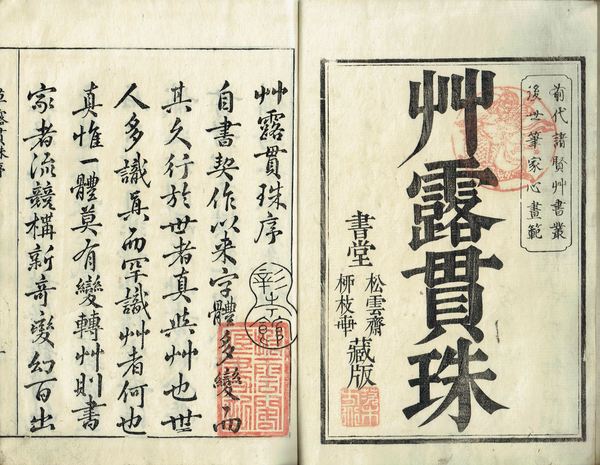 前代諸賢艸書叢
後世筆家心畫範
艸露貫珠
書堂
松雲齋
柳枝軒
藏版
艸露貫珠序
自書契作以來字體多變而
其久行於世者真與艸也世
人多識真而罕識艸者何也
真惟一體莫有變轉艸則書
家者流競構新奇變幻百出